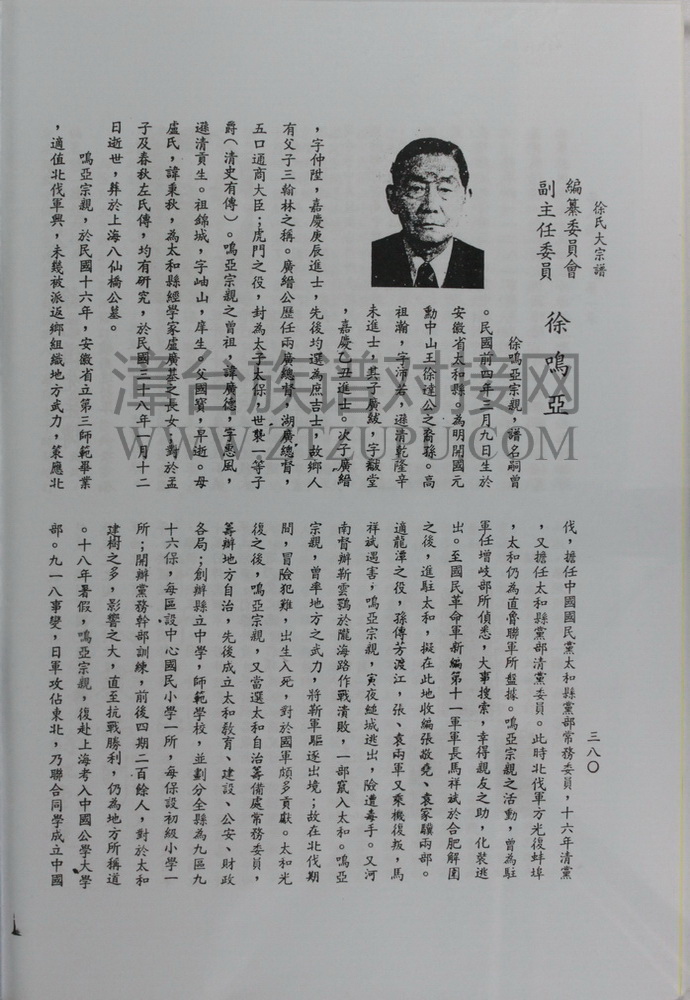 徐氏大宗譜
三八〇
編纂委員會
副主任委員
徐鳴亞
徐鳴亞宗親，譜名嗣曾
。民國前四年三月九日生於
安徽省太和縣。為明開國元
勳中山王徐達公之裔孫。高
祖瀚，字沛若，遜清乾隆辛
未進士，其子廣紱，字黻堂
，嘉慶乙丑進士。次子廣縉
，字仲陞，嘉慶庚辰進士，先後均選為庶吉士，故鄉人
有父子三翰林之稱。廣縉公歷任兩廣總督，湖廣總督，
五口通商大臣；虎門之役，封為太子太保，世襲一等子
爵（清史有傳）。鳴亞宗親之曾祖，諱廣德，字惠風，
遜清貢生。祖錦城，字岫山，庠生。父國寶，早逝。母
盧氏，諱秉秋，為太和縣經學家盧廣基之長女；對於孟
子及春秋左氏傳，均有研究，於民國三十八年一月十二
日逝世，葬於上海八仙橋公墓。
鳴亞宗親，於民國十六年，安徽省立第三師範畢業
，適值北伐軍興，未幾被派返鄉組織地方武力，策應北
伐，擔任中國國民黨太和縣黨部常務委員，十六年清黨
，又擔任太和縣黨部清黨委員。此時北伐軍方光復蚌埠
，太和仍為直魯聯軍所盤據。鳴亞宗親之活動，曾為駐
軍任增岐部所偵悉，大事搜索，幸得親友之助，化裝逃
出。至國民革命軍新編第十一軍軍長馬祥斌於合肥解圍
之後，進駐太和，擬在此地收編張敬堯、袁家驥兩部。
適龍潭之役，孫傳芳渡江，張、袁兩軍又乘機復叛，馬
祥斌遇害，鳴亞宗親，寅夜縋城逃出，險遭毒手。又河
南督辦靳雲鶚於隴海路作戰潰敗，一部竄入太和。鳴亞
宗親，曾率地方之武力，將靳軍驅逐出境；故在北伐期
間，冒險犯難，出生入死，對於國軍頗多貢獻。太和光
復之後，鳴亞宗親，又當選太和自治籌備處常務委員，
籌辦地方自治，先後成立太和教育、建設、公安、財政
各局；創辦縣立中學，師範學校，並劃分全縣為九區九
十六保，每區設中心國民小學一所，每保設初級小學一
所；開辦黨務幹部訓練，前後四期二百餘人，對於太和
建樹之多，影響之大，直至抗戰勝利，仍為地方所稱道
。十八年暑假，鳴亞宗親，復赴上海考入中國公學大學
部。九一八事變，日軍攻佔東北，乃聯合同學成立中國
漳台族谱对接网
WWW.ZTZUPU.COM